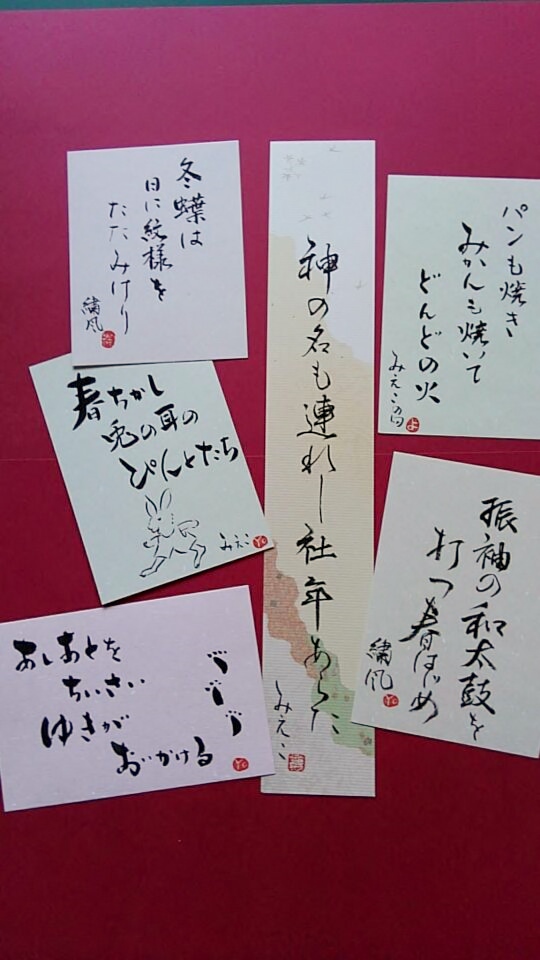 冬蝶は
日に紋様を
たたみけり
繍風
神の名も連れし社年あらた
みえこ
パンも焼き
みかんも焼いて
どんどの火
みえこの句
春ちかし
兎の耳の
ぴんとたち
みえこ
振袖の和太鼓を
打つ春はじめ
繍風
あしあとを
ちいさい
ゆきが
おいかける